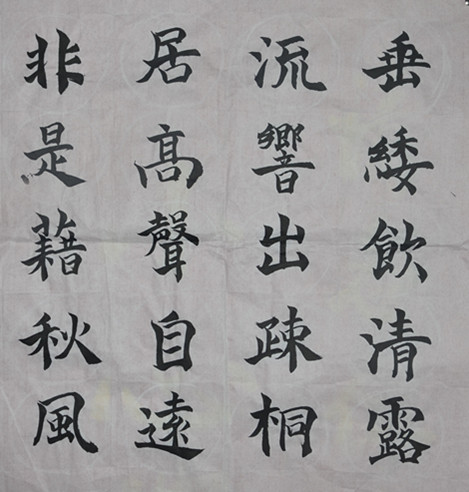 垂緌飲清露
流響出疎桐
居高聲自遠
非是藉秋風